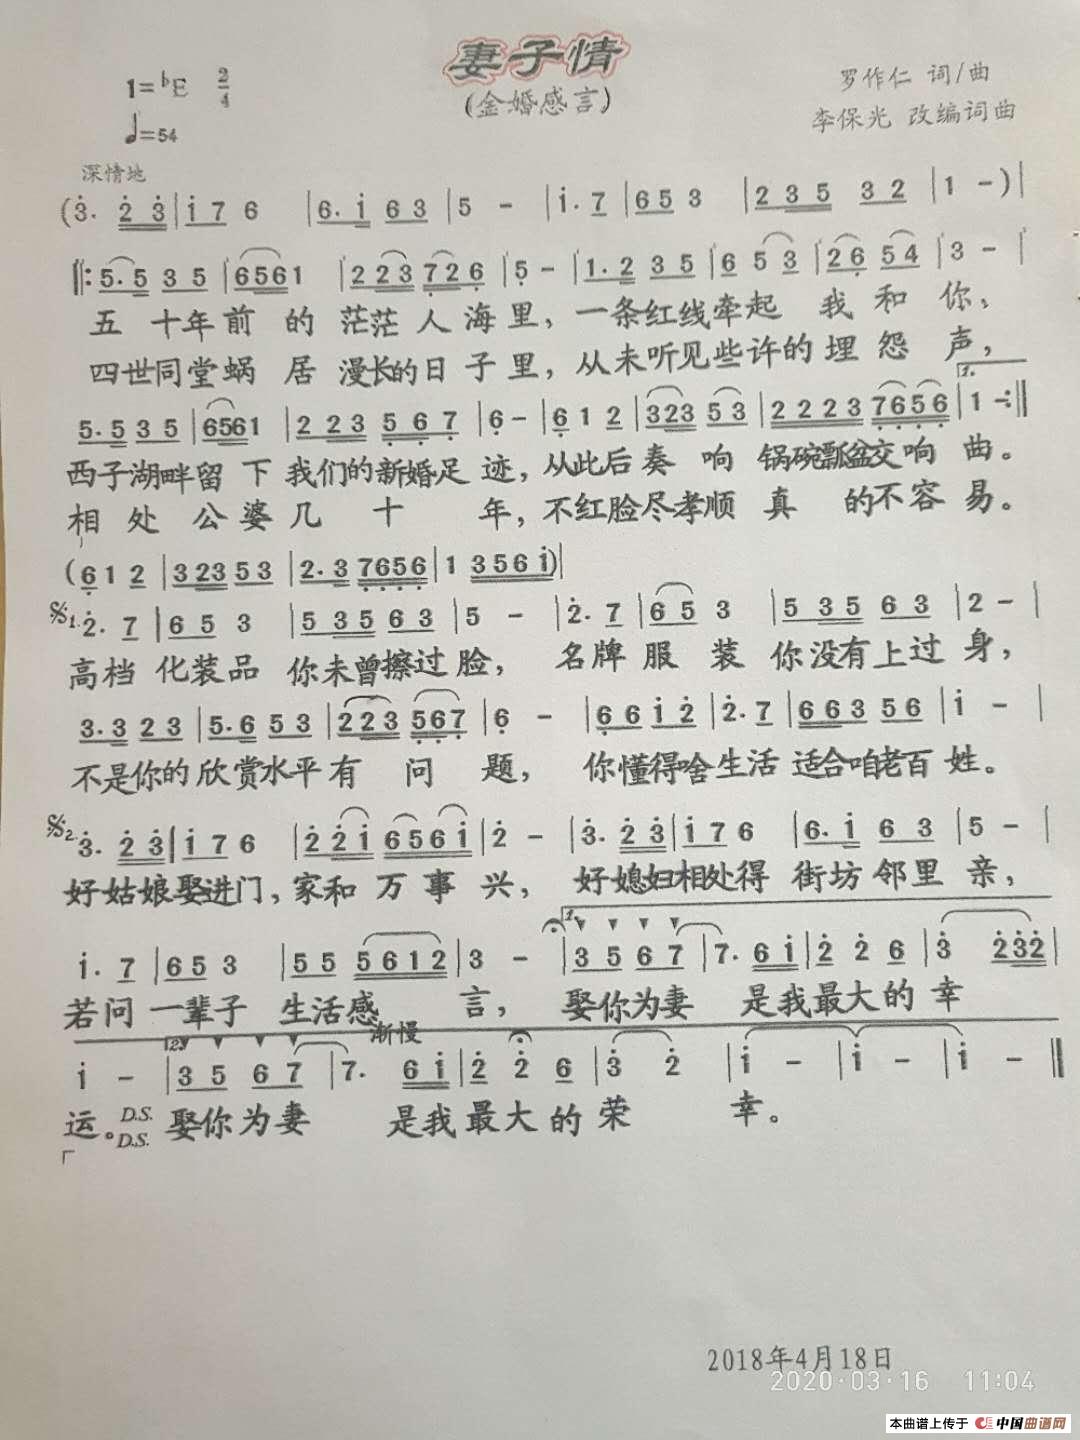 妻子情
(金婚感言)
1=♭E 2/4
♩=54
罗作仁 词/曲
李保光 改编词曲
深情地
(3̇. 2̇ 3̇|1̇ 7 6 |6. 1̇ 6 3|5 - |1̇. 7|6 5 3 |2 3 5 3 2|1 -)|
‖:5. 5 3 5|6 5 6 1|2 2 3 7̣ 2 6̣|5̣ -|1. 2 3 5|6 5 3|2 6̣ 5 4|3 -|
五 十年前 的 茫茫 人 海里，一条红线牵起 我 和 你；
四世同堂蜗 居 漫长的日 子 里，从未听见些许的 埋 怨 声，
1.
5. 5 3 5|6 5 6 1|2 2 3 5̣ 6̣ 7̣|6̣ -|6̣ 1 2|3 2 3 5 3|2 2 2 3 7̣ 6̣ 5̣ 6̣|1 -:‖
西子湖畔留 下 我们的新婚足 迹，从此后奏 响 锅碗瓢盆交响 曲。
相 处 公 婆 几 十 年，不红脸尽孝顺 真 的不容 易。
(6̣ 1 2|3 2 3 5 3|2. 3 7̣ 6̣ 5̣ 6̣|1 3 5 6 1̇)|
𝄋1. 2̇. 7|6 5 3|5 3 5 6 3|5 -|2̇. 7|6 5 3|5 3 5 6 3|2 -|
高档 化装品 你未曾擦过 脸， 名牌 服 装 你没有上过 身，
3. 3 2 3|5. 6 5 3|2 2 3 5̣ 6̣ 7̣|6̣ -|6̣ 6 1̇ 2̇|2̇. 7|6 6 3 5 6|1̇ -|
不是你的 欣赏水平 有 问 题， 你懂得啥生活 适合咱老百 姓。
𝄋2. 3̇. 2̇ 3̇|1̇ 7 6|2̇ 2̇ 1̇ 6 5 6 1̇|2̇ -|3̇. 2̇ 3̇|1̇ 7 6|6. 1̇ 6 3|5 -|
好姑娘娶进门，家和 万 事 兴， 好媳妇相处得 街坊 邻里 亲，
1.
1̇. 7|6 5 3|5 5 5 6 1 2|3 -|3 5 6 7|7. 6 1̇|2̇ 2̇ 6|3̇ 2̇ 3̇ 2̇|
若问 一辈子 生活感 言， 娶你为妻 是我最大的 幸
2. 渐慢
1̇ -|3 5 6 7|7. 6 1̇|2̇ 2̇ 6|3̇ 2̇|1̇ -|1̇ -|1̇ -‖
运。D.S. 娶你为妻 是我最大的 荣 幸。
D.S.
2018年4月18日
2020·03·16 11:04
本曲谱上传于 中国曲谱网